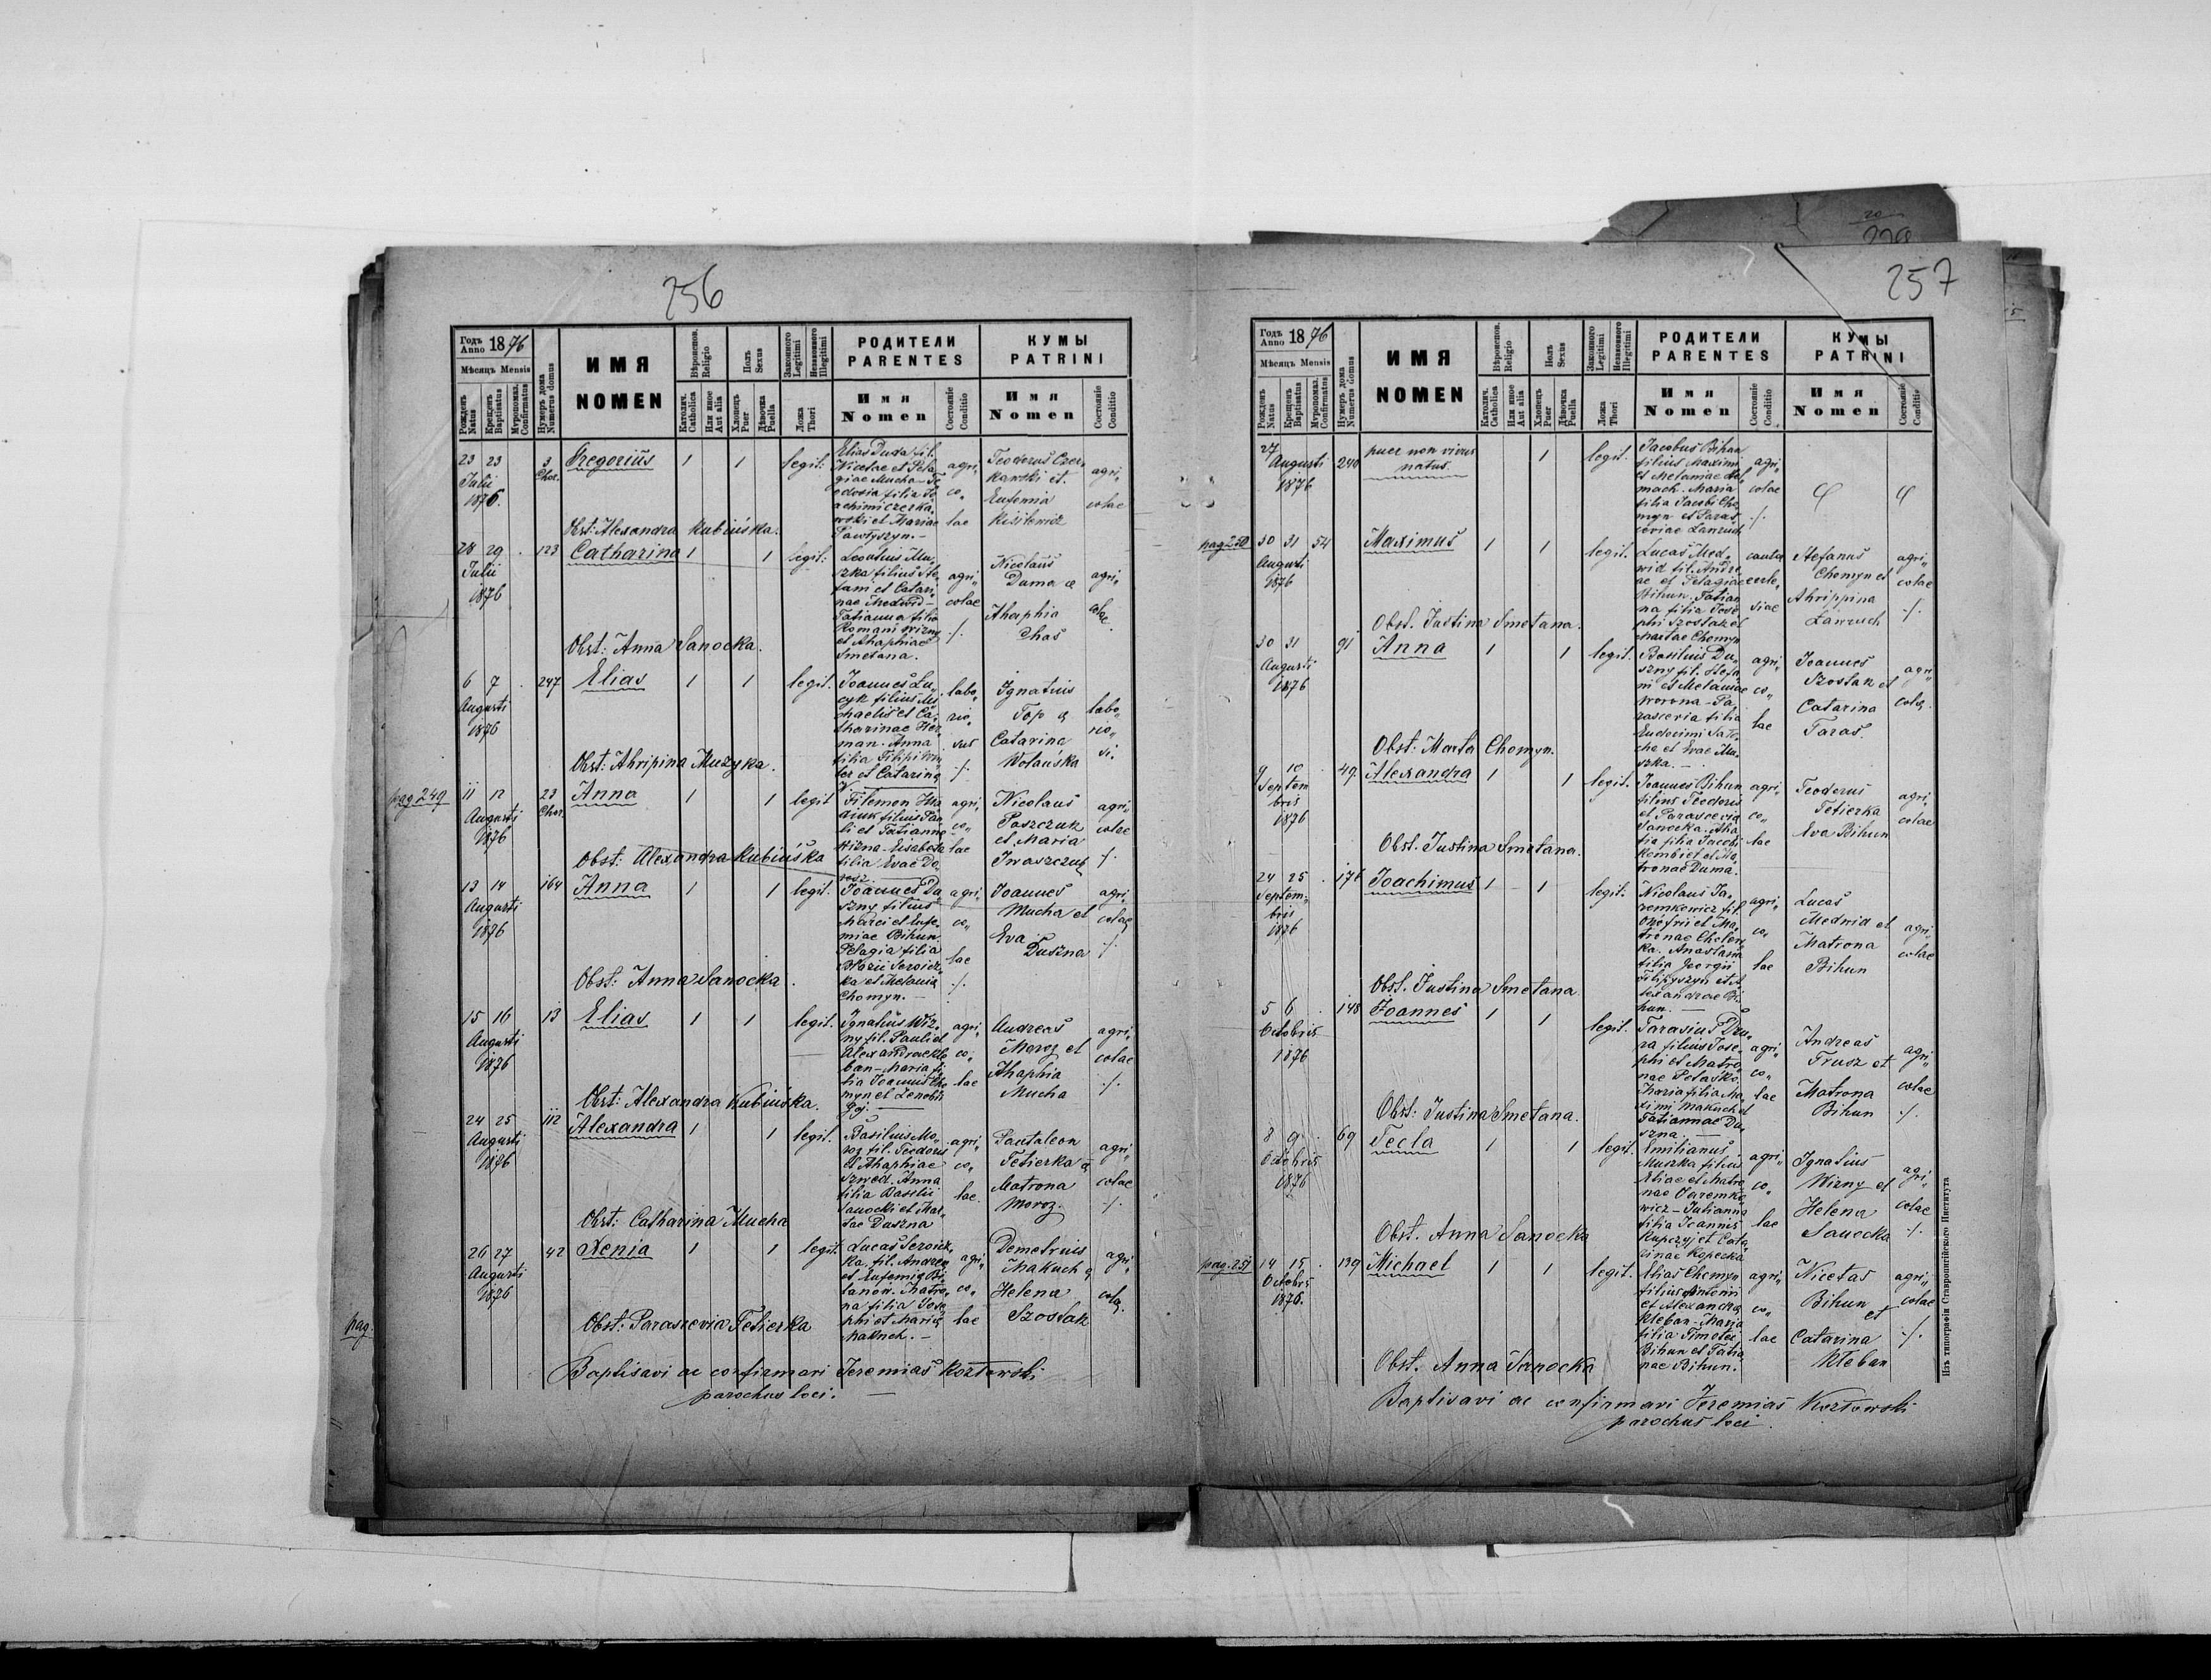 256
Годъ Anno 1876
Мѣсяцъ Mensis
Рожденъ Natus
Крещенъ Baptisatus
Муропомаз. Confirmatus
Нумеръ дома Numerus domus
ИМЯ NOMEN
Вѣроиспов. Religio
Католич. Catholica
Или иное Aut alia
Полъ Sexus
Хлопецъ Puer
Дѣвочка Puella
Законного Legitimi
Незаконного Illegitimi
Ложа Thori
РОДИТЕЛИ PARENTES
Имя Nomen
Состояніе Conditio
КУМЫ PATRINI
Имя Nomen
Состояніе Conditio
23 23 Julii 1876. 3 Chor. Gregorius 1 1 legit:
Elias Duda fil.
Nicetae et Pela
giae Mucha
filia
et Mariae
agri„ co„ lae
Teodorus Czer
kawski et
Eufemia
agri„ colae
Obst: Alexandra Kubiuśka.
28 29 Julii 1876 123 Catharina 1 1 legit:
filius Ste
fani et Catari
nae Medwid
Tatianna filia
Romani Wizny
et Ahaphiae
Smetana.
agri„ colae ./.
Nicolaus
Duma &
Ahaphia
agri„ colae.
Obst: Anna Sanocka.
6 7 Augusti 1876 247 Elias 1 1 legit.
Joannes Lu„
cyk filius Mi
chaelis et Ca
tharinae Her
man. Anna
filia
et Catarina
labo„ rio„ sus ./.
Ignatius
Top &
Catarina
Wolańska
labo„ rio„ si.
Obst: Ahripina Muzyka.
pag 249
11 12 Augusti 1876 23 Chor. Anna 1 1 legit
Filemon
filius Pau
li et Tatianna
Wizna. Elisabeta
filia Evae
agri„ co„ lae
Nicolaus
Paszczuk
et Maria
Iwaszczuk
agri„ colae ./.
Obst: Alexandra Kubiuśka
13 14 Augusti 1876 164 Anna 1 1 legit.
Joannes Du
szny filius
Marci et Eufe„
miae Bihun
Pelagia filia
et Melania
Chomyn.
agri„ co„ lae ./.
Joannes
Mucha et
Eva
Duszna
agri„ colae ./.
Obst: Anna Sanocka.
15 16 Augusti 1876 13 Elias 1 1 legit.
Ignatius Wiz„
ny fil. Pauli et
Alexandrae Kle
ban - Maria fi
lia Joannis Cho
myn et Zenobii
agri„ co„ lae
Andreas
Moroz et
Ahaphia
Mucha
agri„ colae ./.
Obst: Alexandra Kubiuśka.
24 25 Augusti 1876 112 Alexandra 1 1 legit.
Basilius Mo„
roz fil. Teodori
et Ahaphiae
Szwed. Anna
filia Basilii
Sanocki et Mar
tae Duszna
agri„ co„ lae
Pantaleon
Tetierka &
Matrona
Moroz.
agri„ colae ./.
Obst: Catharina Mucha
26 27 Augusti 1876 42 Xenia 1 1 legit.
ka, fil. Andreae
et Eufemia Bi
lanow. Matro„
na filia Jose„
phi et Mariae
Makuch.
agri„ co„ lae
Demetrius
Makuch &
Helena
Szostak
agri„ colae.
Obst: Parascevia Tetierka
pag.
Baptisavi ac confirmavi Jeremias Kozłowski
parochus loci.
257
Годъ Anno 1876
Мѣсяцъ Mensis
Рожденъ Natus
Крещенъ Baptisatus
Муропомаз. Confirmatus
Нумеръ дома Numerus domus
ИМЯ NOMEN
Вѣроиспов. Religio
Католич. Catholica
Или иное Aut alia
Полъ Sexus
Хлопецъ Puer
Дѣвочка Puella
Законного Legitimi
Незаконного Illegitimi
Ложа Thori
РОДИТЕЛИ PARENTES
Имя Nomen
Состояніе Conditio
КУМЫ PATRINI
Имя Nomen
Состояніе Conditio
27 Augusti 1876 240 puer non vivus natus. 1 legit.
Jacobus Bihun
filius Maximi
et Melaniae
Maria
filia Jacobi Cho
myn et Paras
ceviae Lanzuch
agri„ colae ./.
pag 250
30 31 Augusti 1876 54 Maximus 1 1 legit.
Lucas Med„
wid fil. Andre
ae et Pelagiae
Bihun. Tatian
na filia Jose
phi Szostak et
Martae Chomyn
cantor eccle„ siae
Stefanus
Chomyn et
Ahrippina
Lanzuch
agri„ colae ./.
Obst. Justina Smetana.
30 31 Augusti 1876 91 Anna 1 1 legit.
Basilius Du„
szny fil. Stefa
ni et Melaniae
Worona - Pa
rascevia filia
et Evae Mu„
szka.
agri„ co„ lae
Joannes
Szostak et
Catarina
Taras
agri„ colae.
Obst: Marta Chomyn.
9 10 Septembris 1876 49. Alexandra 1 1 legit.
Joannes Bihun
filius Teodoris
et Parascevia
Sanocka. Aha
fia filia Jacobi
et Ma„
tronae Duma.
agri„ co„ lae
Teodorus
Tetierka
Eva Bihun
agri„ colae
Obst. Justina Smetana.
24 25 Septembris 1876 176 Joachimus 1 1 legit:
Nicolaus Ja„
remkewicz fil.
Onofrii et Ma„
tronae
Anastasia
filia Georgii
Filipyszyn et A
lexandrae Bi
hun.
agri„ co„ lae
Lucas
Medwid et
Matrona
Bihun
agri„ colae
Obst. Justina Smetana
5 6 Octobris 1876 148 Joannes 1 1 legit.
Tarasius
filius Jose„
phi et Matro
nae
Maria filia Ma„
ximi Makuch et
Tatiannae Du„
szna.
agri„ co„ lae
Andreas
Trusz et
Matrona
Bihun
agri„ colae ./.
Obst: Justina Smetana.
8 9 Octobris 1876 69 Tecla 1 1 legit.
Emilianus
Muszka filius
Eliae et Matro
nae Jaremke
wicz - Julianna
filia Joannis
Kupczyj et Cata
rinae Kopecka
agri„ co„ lae
Ignatius
Wizny et
Helena
Sanocka
agri„ colae ./.
Obst. Anna Sanocka
pag. 251
14 15 Octobris 1876. 139 Michael 1 1 legit.
Elias Chomyn
filius Antonii
et Alexandra
Kleban - Maria
filia Timotei
Bihun et Tatia
nae Bihun.
agri„ co„ lae
Nicetas
Bihun
et
Catarina
Kleban
agri„ colae ./.
Obst. Anna Sanocka
Baptisavi ac confirmavi Jeremias Kozłowski
parochus loci.
Изъ типографіи Ставропигійского Института